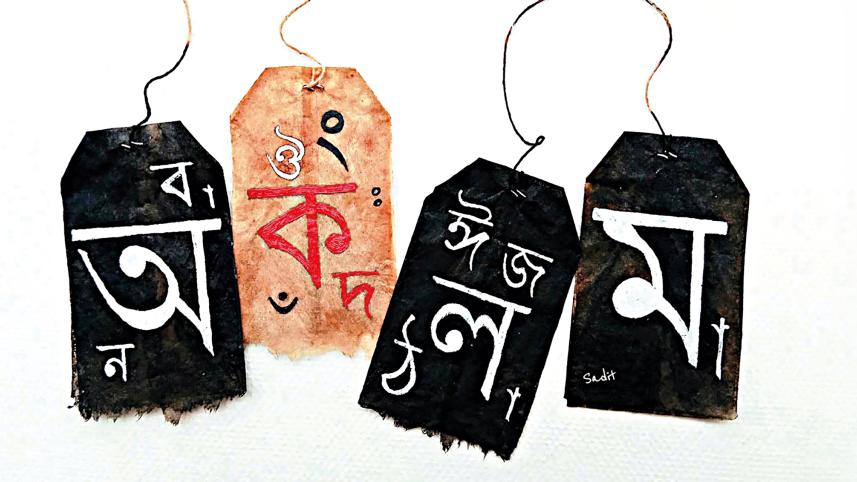 ব া
অ
ন
ঔ ং
ক ঃ
ঁ দ
ঈ জ
ল
ঠ া
ম া
Sadit